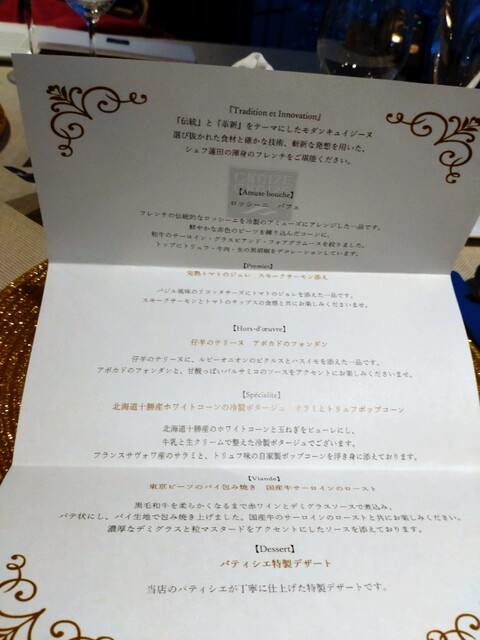 『Tradition et Innovation』
『伝統』と『革新』をテーマにしたモダンキュイジーヌ
選び抜かれた食材と確かな技術、斬新な発想を用いた、
シェフ蓮田の渾身のフレンチをご堪能ください。
【Amuse bouche】
ロッシーニ パフェ
フレンチの伝統的なロッシーニを冷製のアミューズにアレンジした一品です。
鮮やかな赤色のビーツを練り込んだコーンに、
和牛のサーロイン・グラスビアンド・フォアグラムースを絞りました。
トップにトリュフ・牛肉・生の黒胡椒をデコレーションしています。
【Premier】
完熟トマトのジュレ スモークサーモン添え
バジル風味のリコッタチーズにトマトのジュレを添えた一品です。
スモークサーモンとトマトのチップスの食感と共にお楽しみくださいませ。
【Hors-d'œuvre】
仔羊のテリーヌ アボカドのフォンダン
仔羊のテリーヌに、ルビーオニオンのピクルスとハスイモを添えた一品です。
アボカドのフォンダンと、甘酸っぱいバルサミコのソースをアクセントにお楽しみくださいませ。
【Spécialité】
北海道十勝産ホワイトコーンの冷製ポタージュ サラミとトリュフポップコーン
北海道十勝産のホワイトコーンと玉ねぎをピューレにし、
牛乳と生クリームで整えた冷製ポタージュでございます。
フランスサヴォワ産のサラミと、トリュフ味の自家製ポップコーンを浮き身に添えております。
【Viande】
東京ビーフのパイ包み焼き 国産牛サーロインのロースト
黒毛和牛を柔らかくなるまで赤ワインとデミグラスソースで煮込み、
パテ状にし、パイ生地で包み焼き上げました。国産牛のサーロインのローストと共にお楽しみください。
濃厚なデミグラスと粒マスタードをアクセントにしたソースを添えております。
【Dessert】
パティシエ特製デザート
当店のパティシエが丁寧に仕上げた特製デザートです。